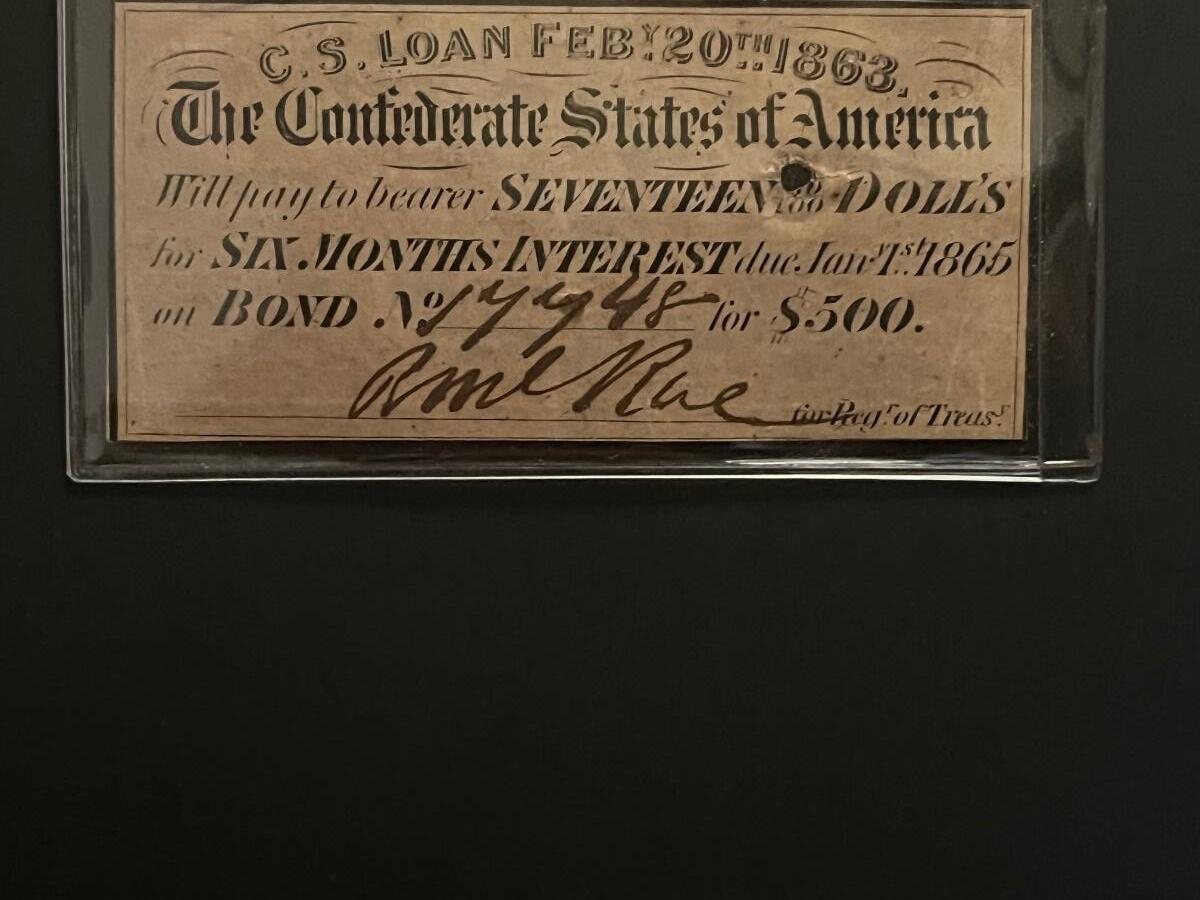 C.S. LOAN FEBY 20TH 1863,
The Confederate States of America
Will pay to bearer SEVENTEEN /100 DOLL'S
for SIX MONTHS INTEREST due Jany 1st 1865
on BOND No 17748 for $500.
for Regr of Treasy